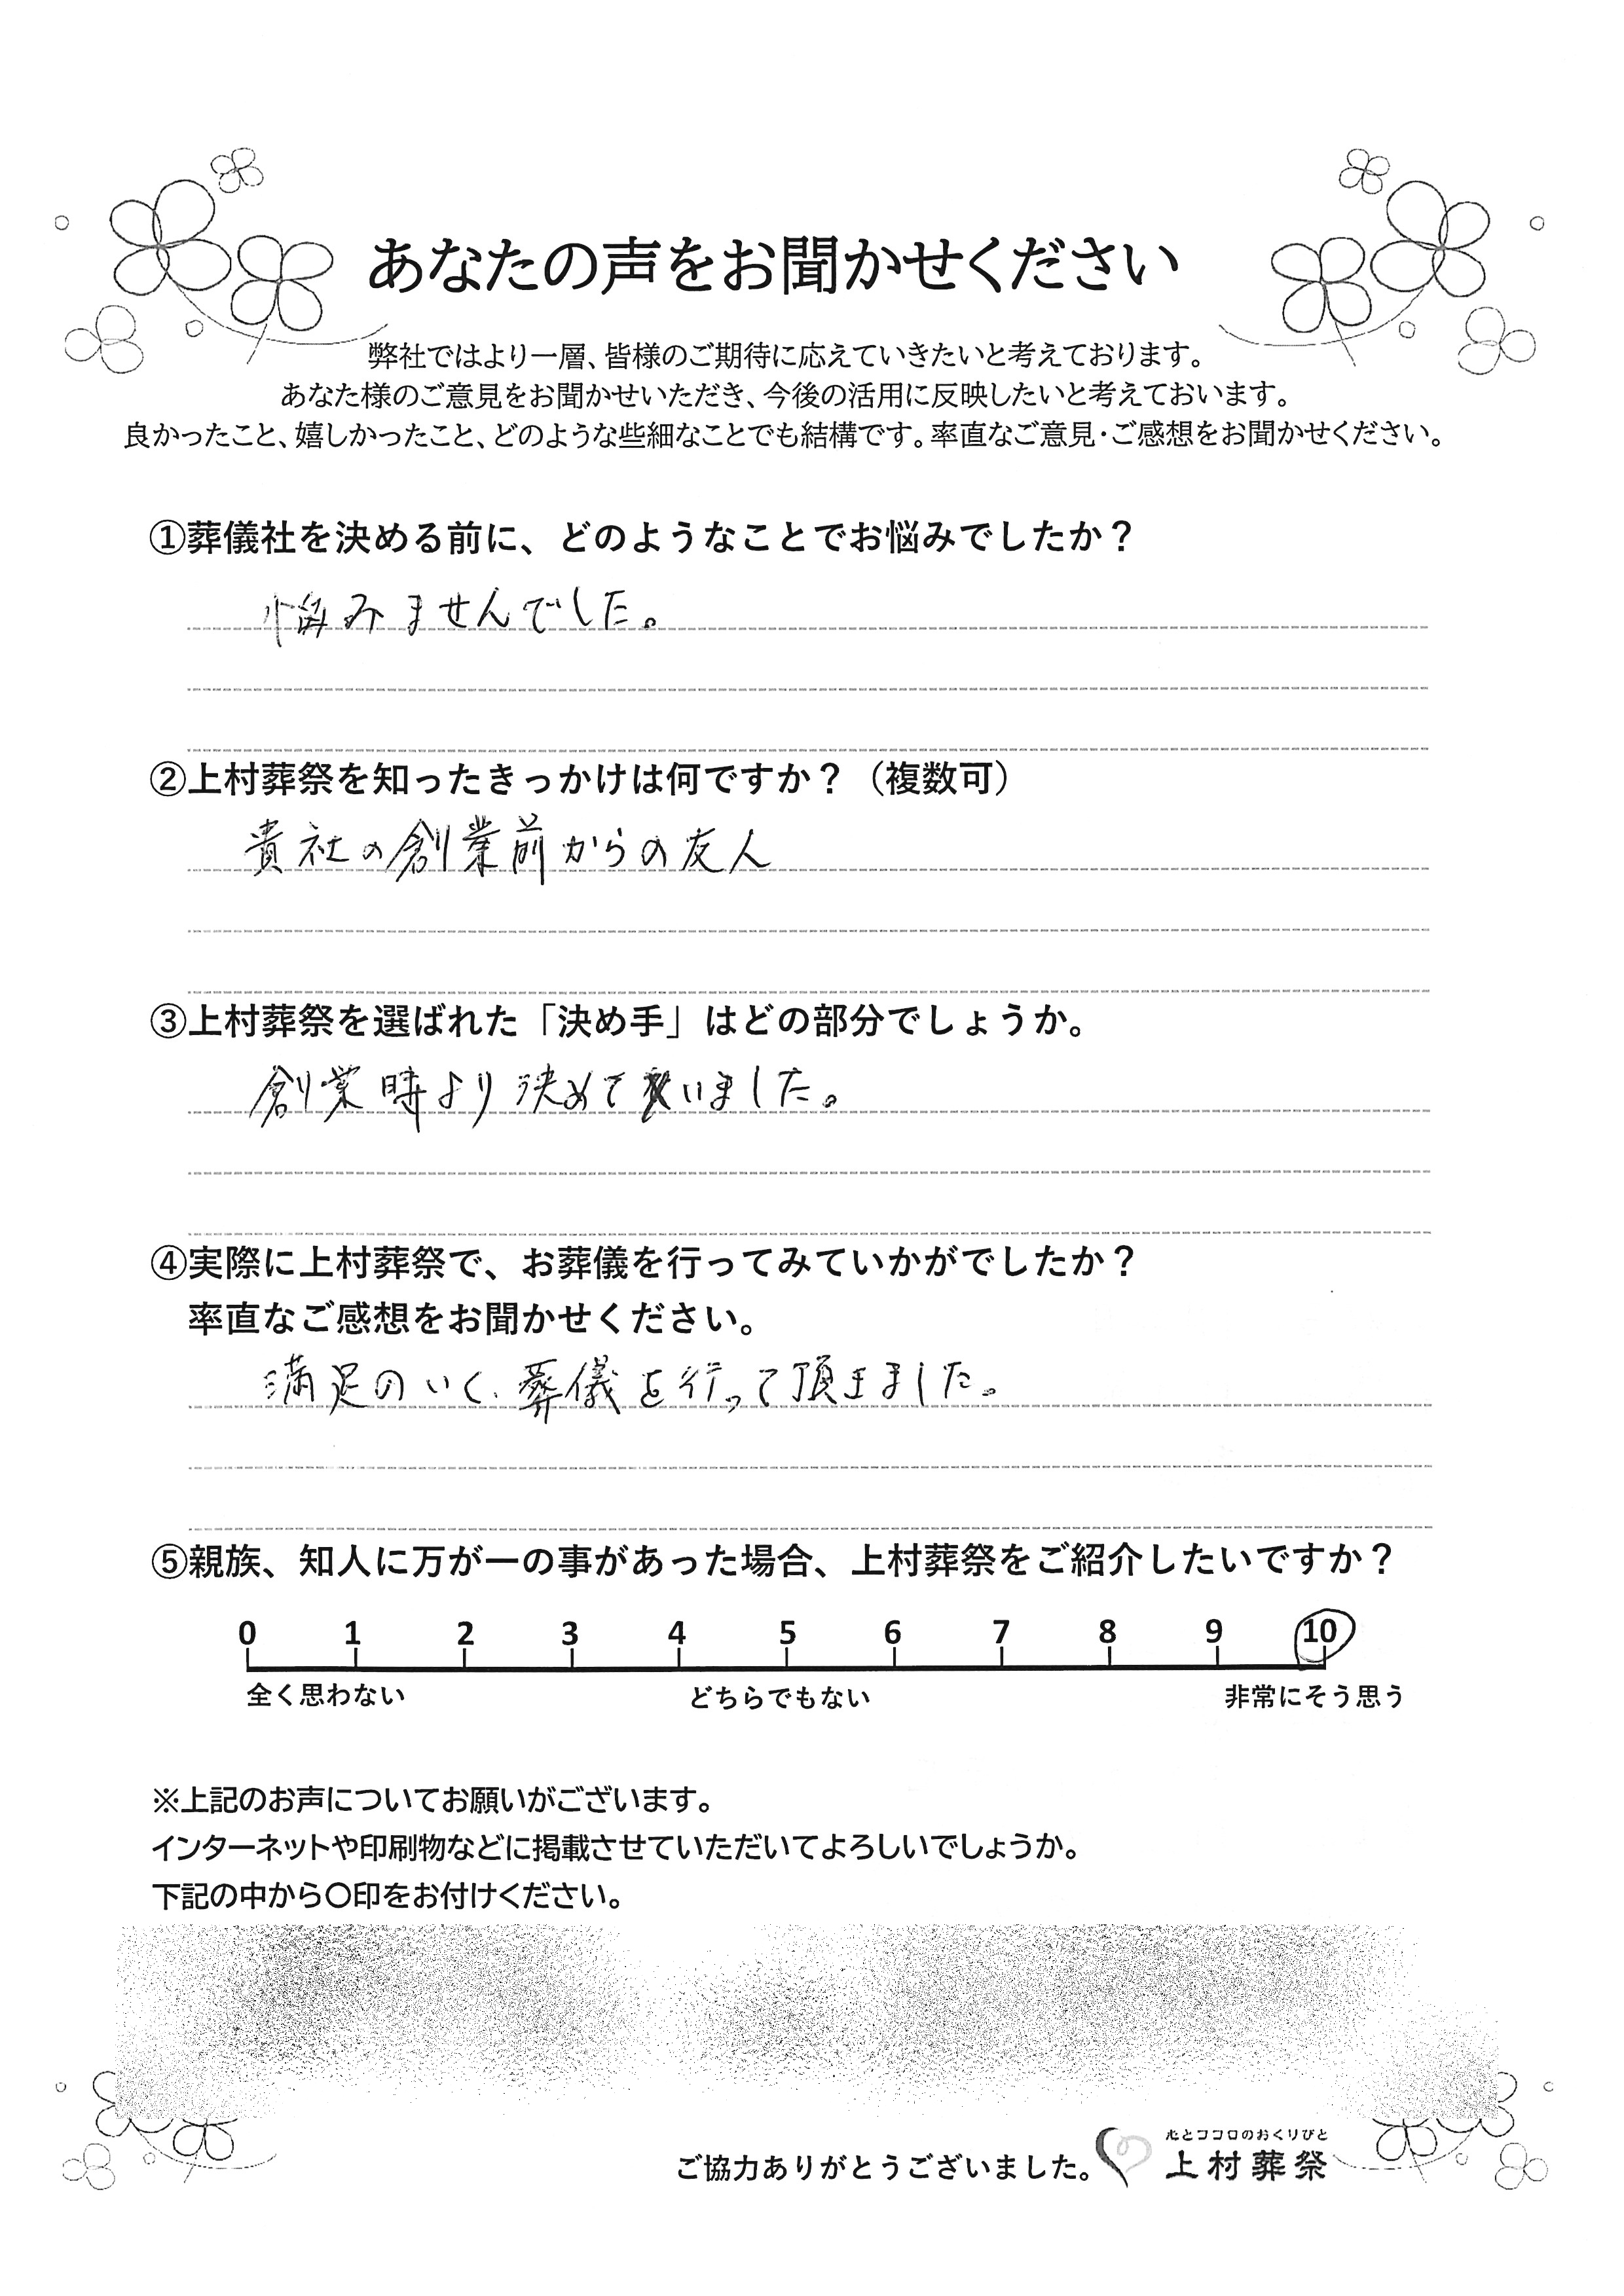 あなたの声をお聞かせください
弊社ではより一層、皆様のご期待に応えていきたいと考えております。
あなた様のご意見をお聞かせいただき、今後の活用に反映したいと考えておいます。
良かったこと、嬉しかったこと、どのような些細なことでも結構です。率直なご意見・ご感想をお聞かせください。
①葬儀社を決める前に、どのようなことでお悩みでしたか？
悩みませんでした。
②上村葬祭を知ったきっかけは何ですか？（複数可）
貴社の創業前からの友人
③上村葬祭を選ばれた「決め手」はどの部分でしょうか。
創業時より決めていました。
④実際に上村葬祭で、お葬儀を行ってみていかがでしたか？
率直なご感想をお聞かせください。
満足のいく葬儀を行って頂きました。
⑤親族、知人に万が一の事があった場合、上村葬祭をご紹介したいですか？
0 1 2 3 4 5 6 7 8 9 10
全く思わない どちらでもない 非常にそう思う
※上記のお声についてお願いがございます。
インターネットや印刷物などに掲載させていただいてよろしいでしょうか。
下記の中から〇印をお付けください。
心とココロのおくりびと
ご協力ありがとうございました。 上村葬祭